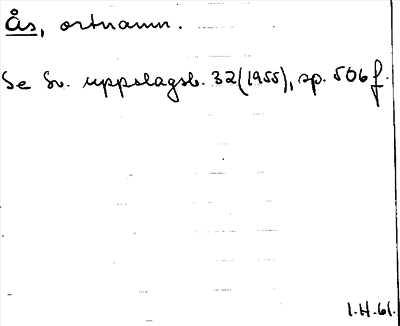 Ås, ortnamn.
Se Sv. uppslagsb. 32(1955), sp. 506 f.
1.H.61.